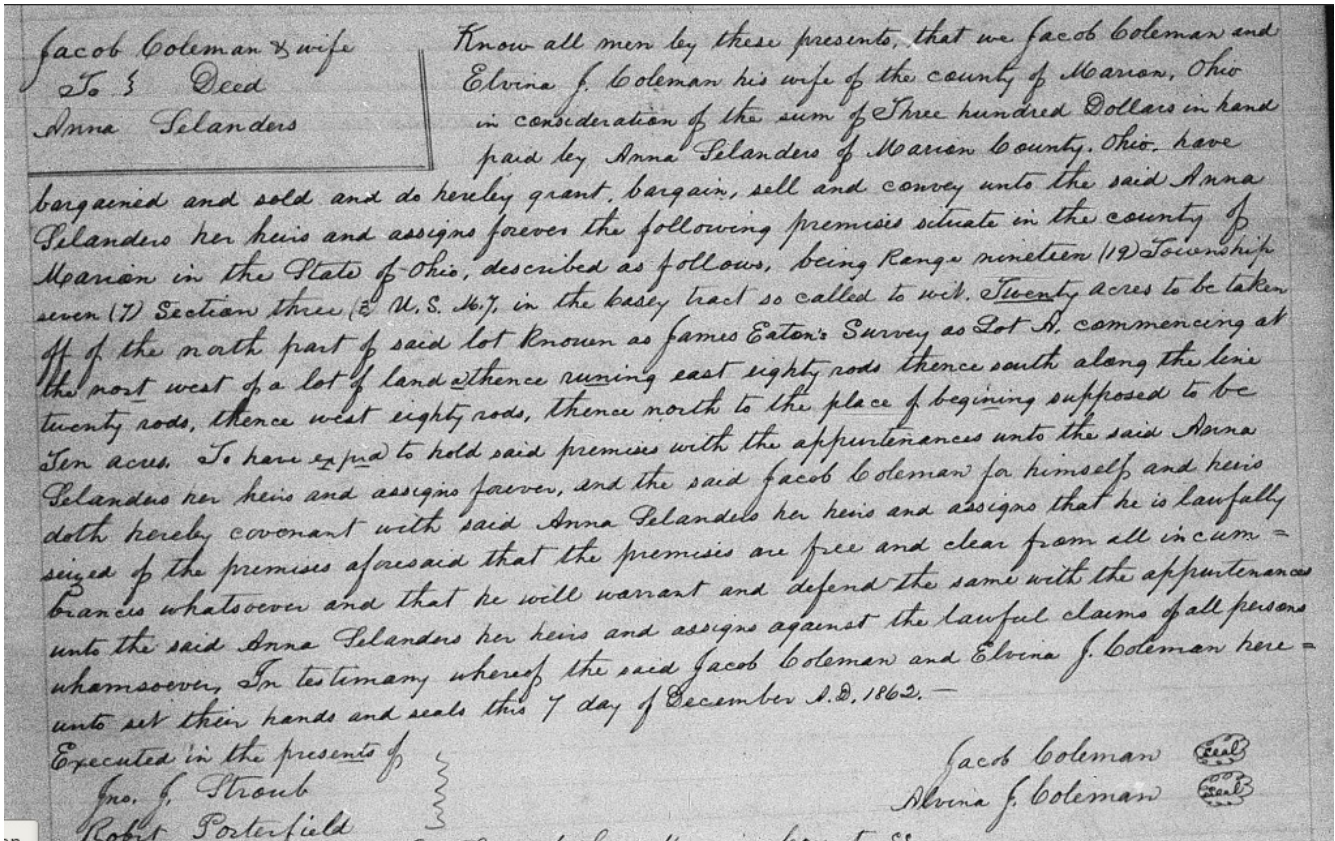 Jacob Coleman & wife
To } Deed
Anna Selanders
Know all men by these presents, that we Jacob Coleman and
Elvina J. Coleman his wife of the county of Marion, Ohio
in consideration of the sum of Three hundred Dollars in hand
paid by Anna Selanders of Marion County. Ohio. have
bargained and sold and do hereby grant, bargain, sell and convey unto the said Anna
Selanders her heirs and assigns forever the following premises situate in the county of
Marion in the State of Ohio, described as follows, being Range nineteen (19) Township
seven (7) Section three (3 U. S. M.), in the Casey tract so called to wit. Twenty acres to be taken
off of the north part of said lot known as James Eaton's Survey as Lot A. commencing at
the nort west of a lot of land thence runing east eighty rods thence south along the line
twenty rods, thence west eighty rods, thence north to the place of begining supposed to be
Ten acres. To have to hold said premises with the appurtenances unto the said Anna
Selanders her heirs and assigns forever, and the said Jacob Coleman for himself and heirs
doth hereby covenant with said Anna Selanders her heirs and assigns that he is lawfully
seized of the premises aforesaid that the premises are free and clear from all incum=
brances whatsoever and that he will warrant and defend the same with the appurtenances
unto the said Anna Selanders her heirs and assigns against the lawful claims of all persons
whamsoever, In testimany whereof the said Jacob Coleman and Elvina J. Coleman here=
unto set their hands and seals this 7 day of December A.D. 1862. —
Executed in the presents of
Jno. J. Stroub
Robt Porterfield
Jacob Coleman seal
Alvina J. Coleman seal